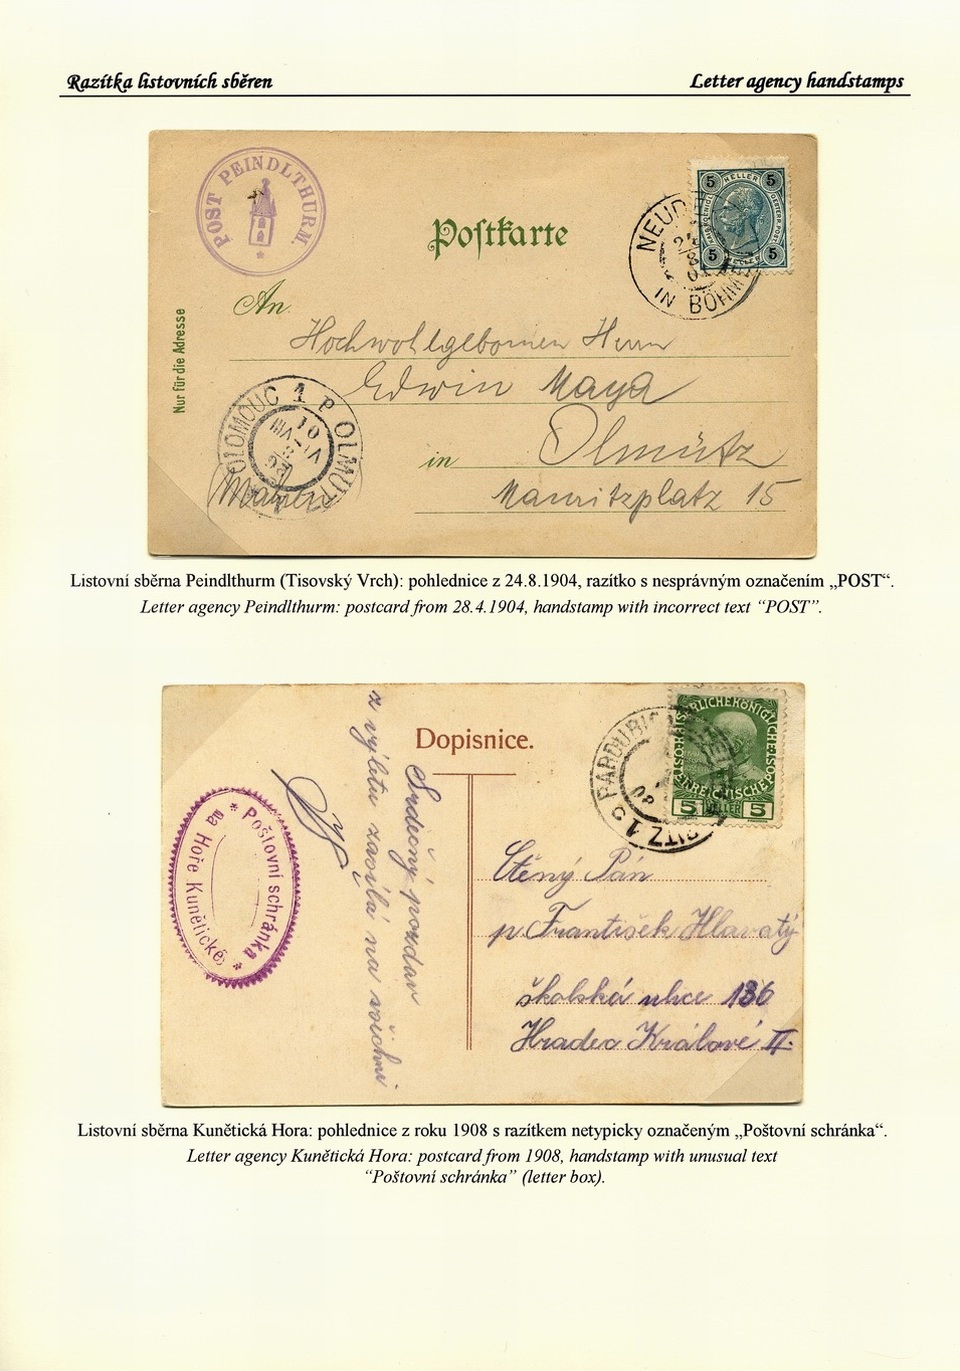 Razítka listovních sběren
Letter agency handstamps
POST PEINDLTHURM.
Postkarte
5 HELLER 5
5 HELLER 5
IN BÖHM
An
Nur für die Adresse
Hochwohlgebornen Herrn
Edwin Maya
in Olmütz
Mauritzplatz 15
OLOMOUC 1 P OLMU
Mähren
Listovní sběrna Peindlthurm (Tisovský Vrch): pohlednice z 24.8.1904, razítko s nesprávným označením „POST“.
Letter agency Peindlthurm: postcard from 28.4.1904, handstamp with incorrect text “POST”.
Dopisnice.
Srdečný pozdav
z výletu zasílá na všichni
* Poštovní schránka *
na Hoře Kunětické
PARDUBIC
5 HELLER 5
Ctěný Pán
p. František Hlavatý
školská ulice 136
Hradec Králové II.
Listovní sběrna Kunětická Hora: pohlednice z roku 1908 s razítkem netypicky označeným „Poštovní schránka“.
Letter agency Kunětická Hora: postcard from 1908, handstamp with unusual text
“Poštovní schránka” (letter box).